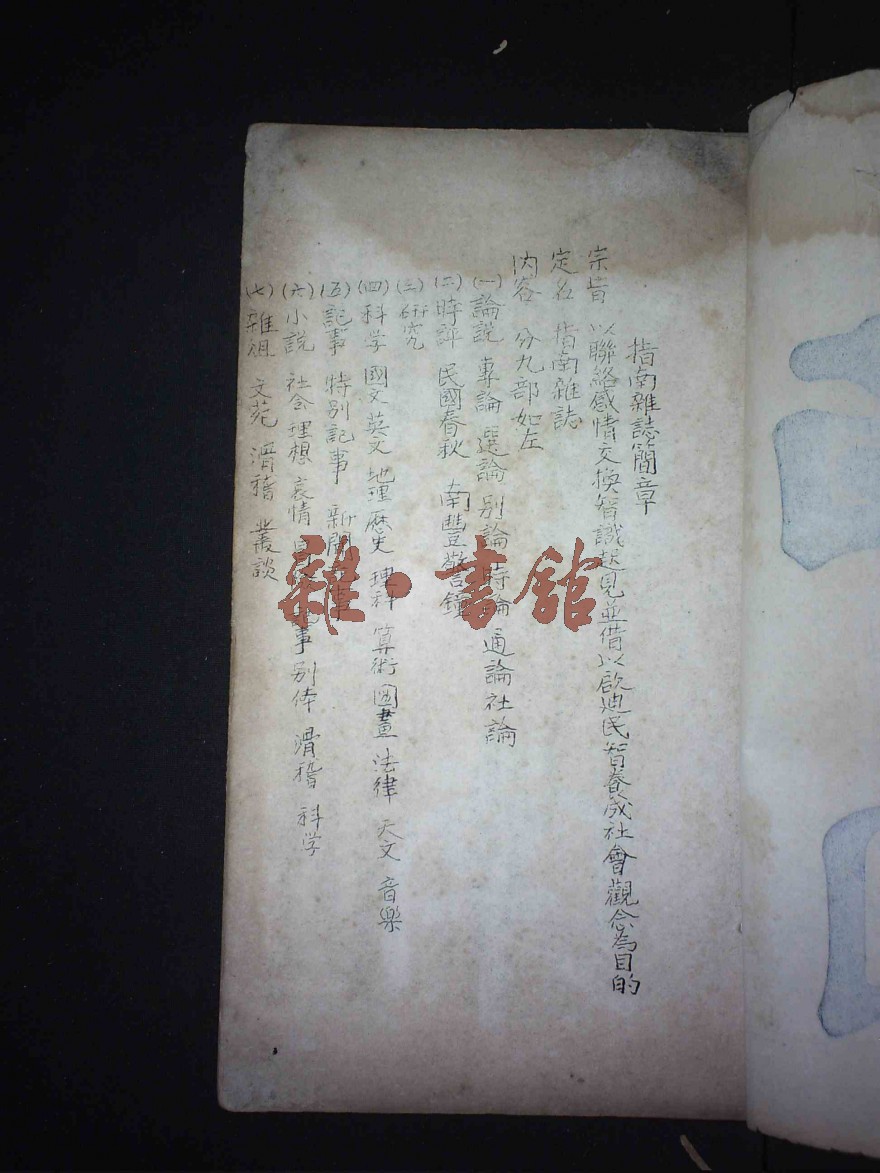 指南雜誌簡章
宗旨 以聯絡感情交換智識起見並借以啟迪民智養成社會觀念為目的
定名 指南雜誌
內容 分九部如左
(一)論說 專論 選論 別論 時論 通論 社論
(二)時評 民國春秋 南豐警鐘
(三)研究
(四)科学 國文 英文 地理 歷史 理科 算術 圖畫 法律 天文 音樂
(五)記事 特別記事 新聞
(六)小說 社会 理想 哀情 事 別体 滑稽 科学
(七)雜俎 文苑 滑稽 叢談
雜·書館